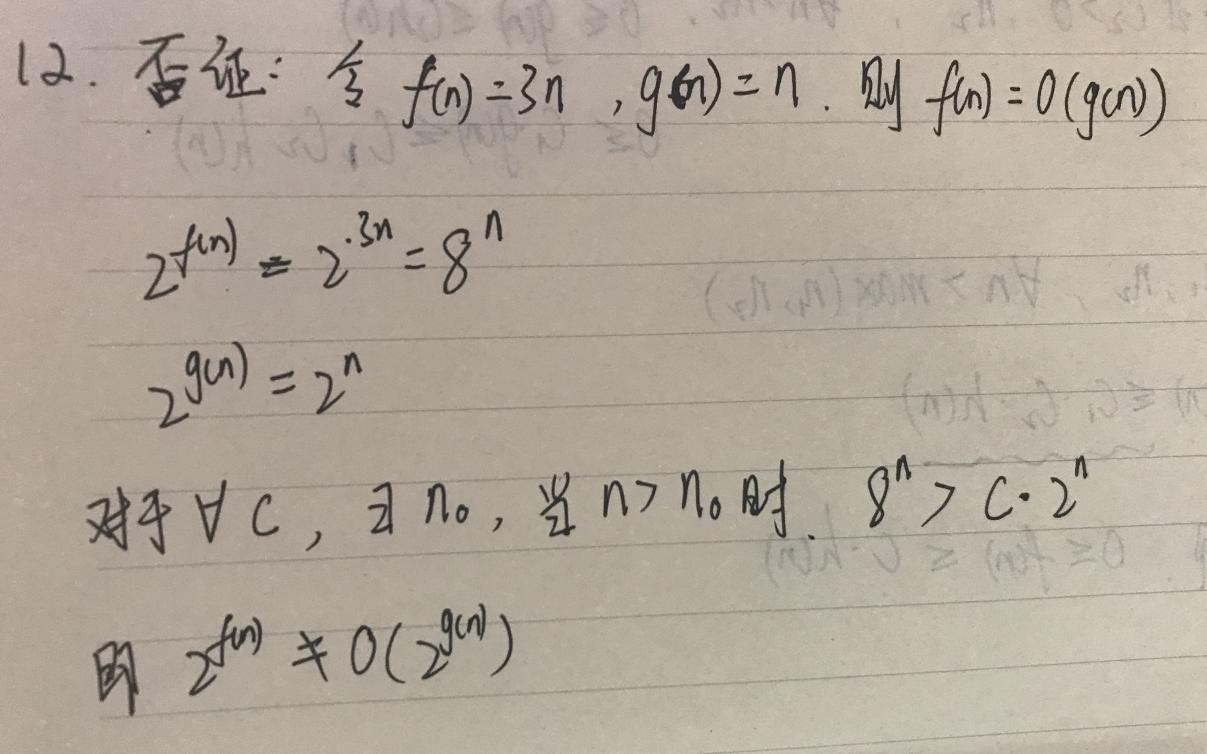 12. 否证: 令 f(n)=3n , g(n)=n. 则 f(n)=O(g(n))
2^{f(n)} = 2^{3n} = 8^n
2^{g(n)} = 2^n
对于 ∀ C, ∃ n₀, 当 n > n₀ 时. 8^n > C·2^n
即 2^{f(n)} ≠ O(2^{g(n)})